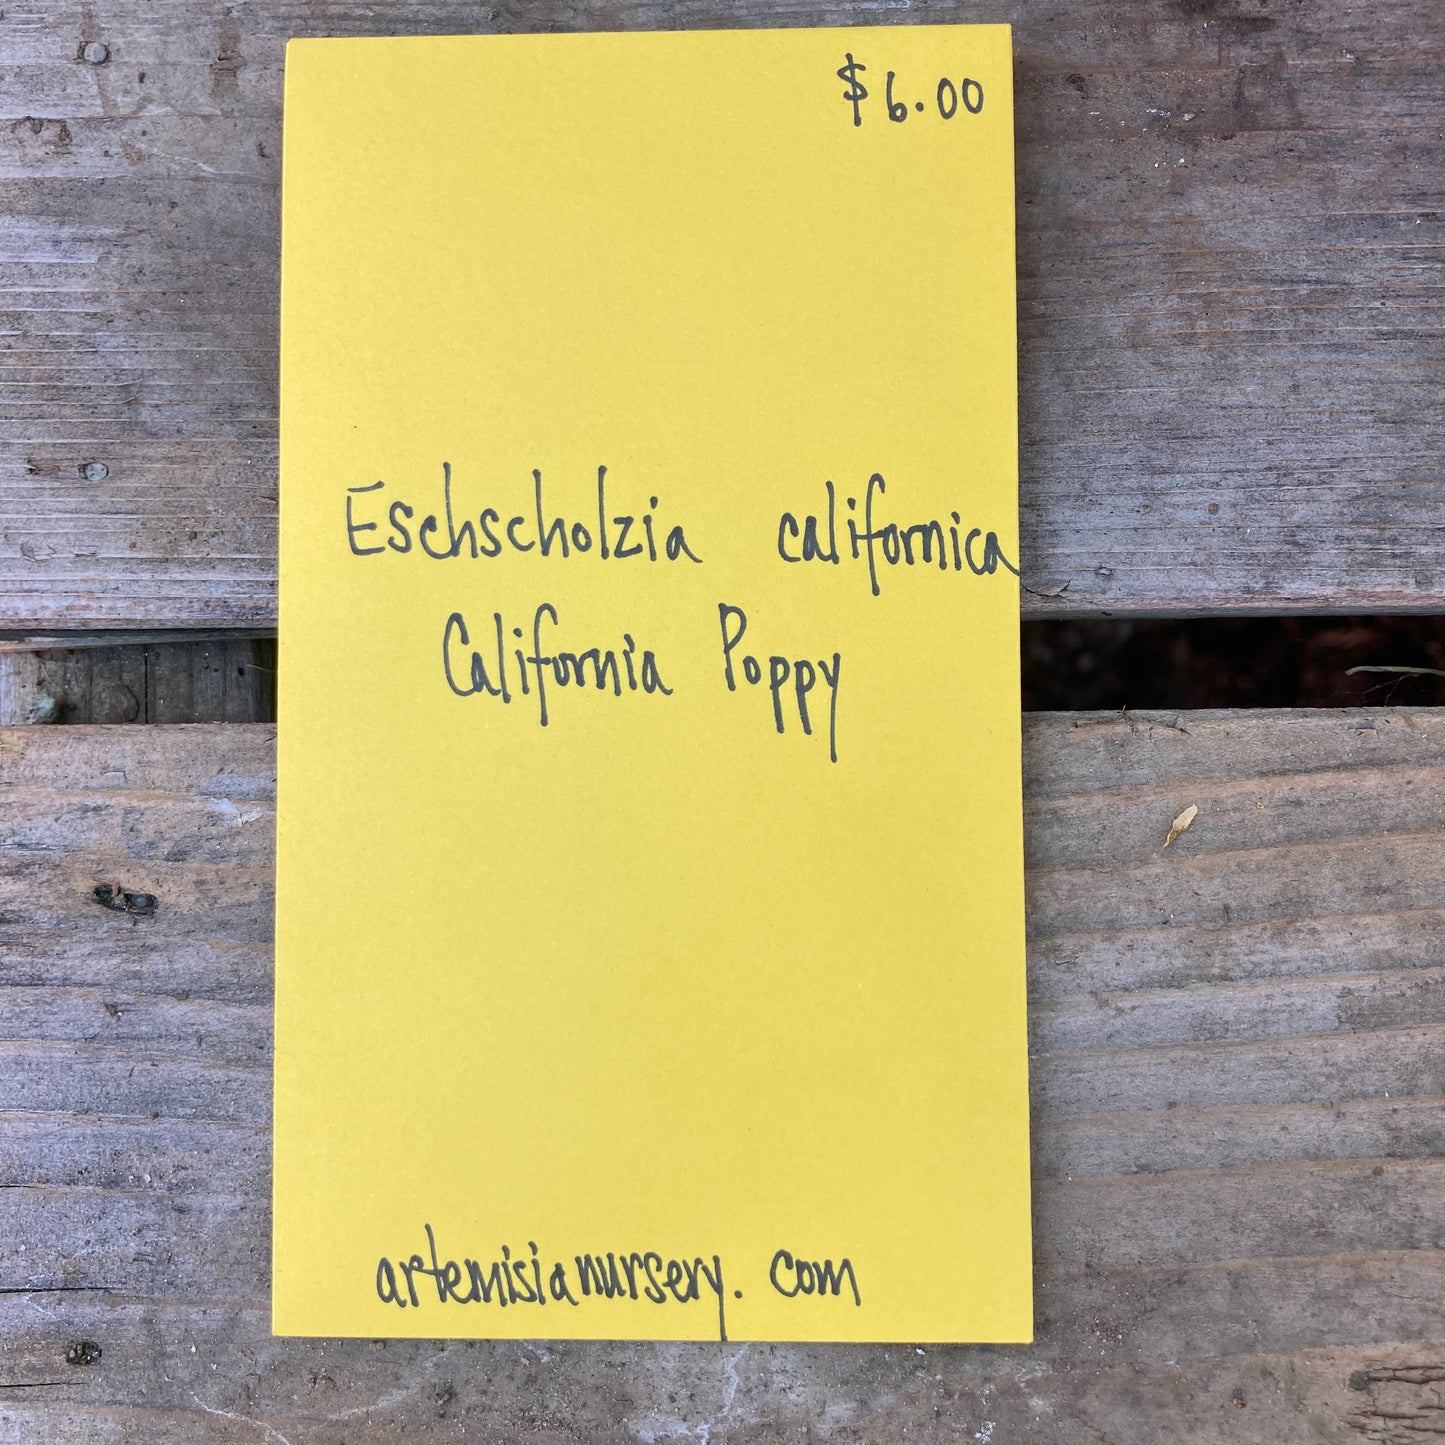 $6.00
Eschscholzia californica
California Poppy
artemisianursery.com